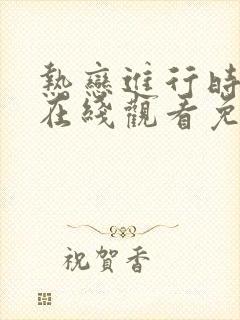 熱戀進行時
在綫觀看免
祝賀香